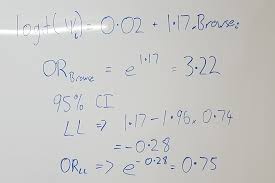 logit(Yᵢ) = 0.02 + 1.17 Browseᵢ
OR_Browse = e^1.17 = 3.22
95% CI
LL => 1.17 - 1.96, 0.74
= -0.28
OR_LL => e^-0.28 = 0.75